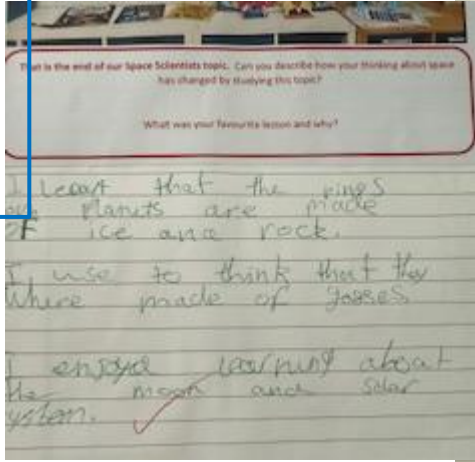 That is the end of our Space Scientists topic. Can you describe how your thinking about space
has changed by studying this topic?
What was your favourite lesson and why?
I leart that the rings
planits are made
of ice and rock.
I use to think that they
where made of gasses
I enjoyd learning about
the moon and solar
ystem.